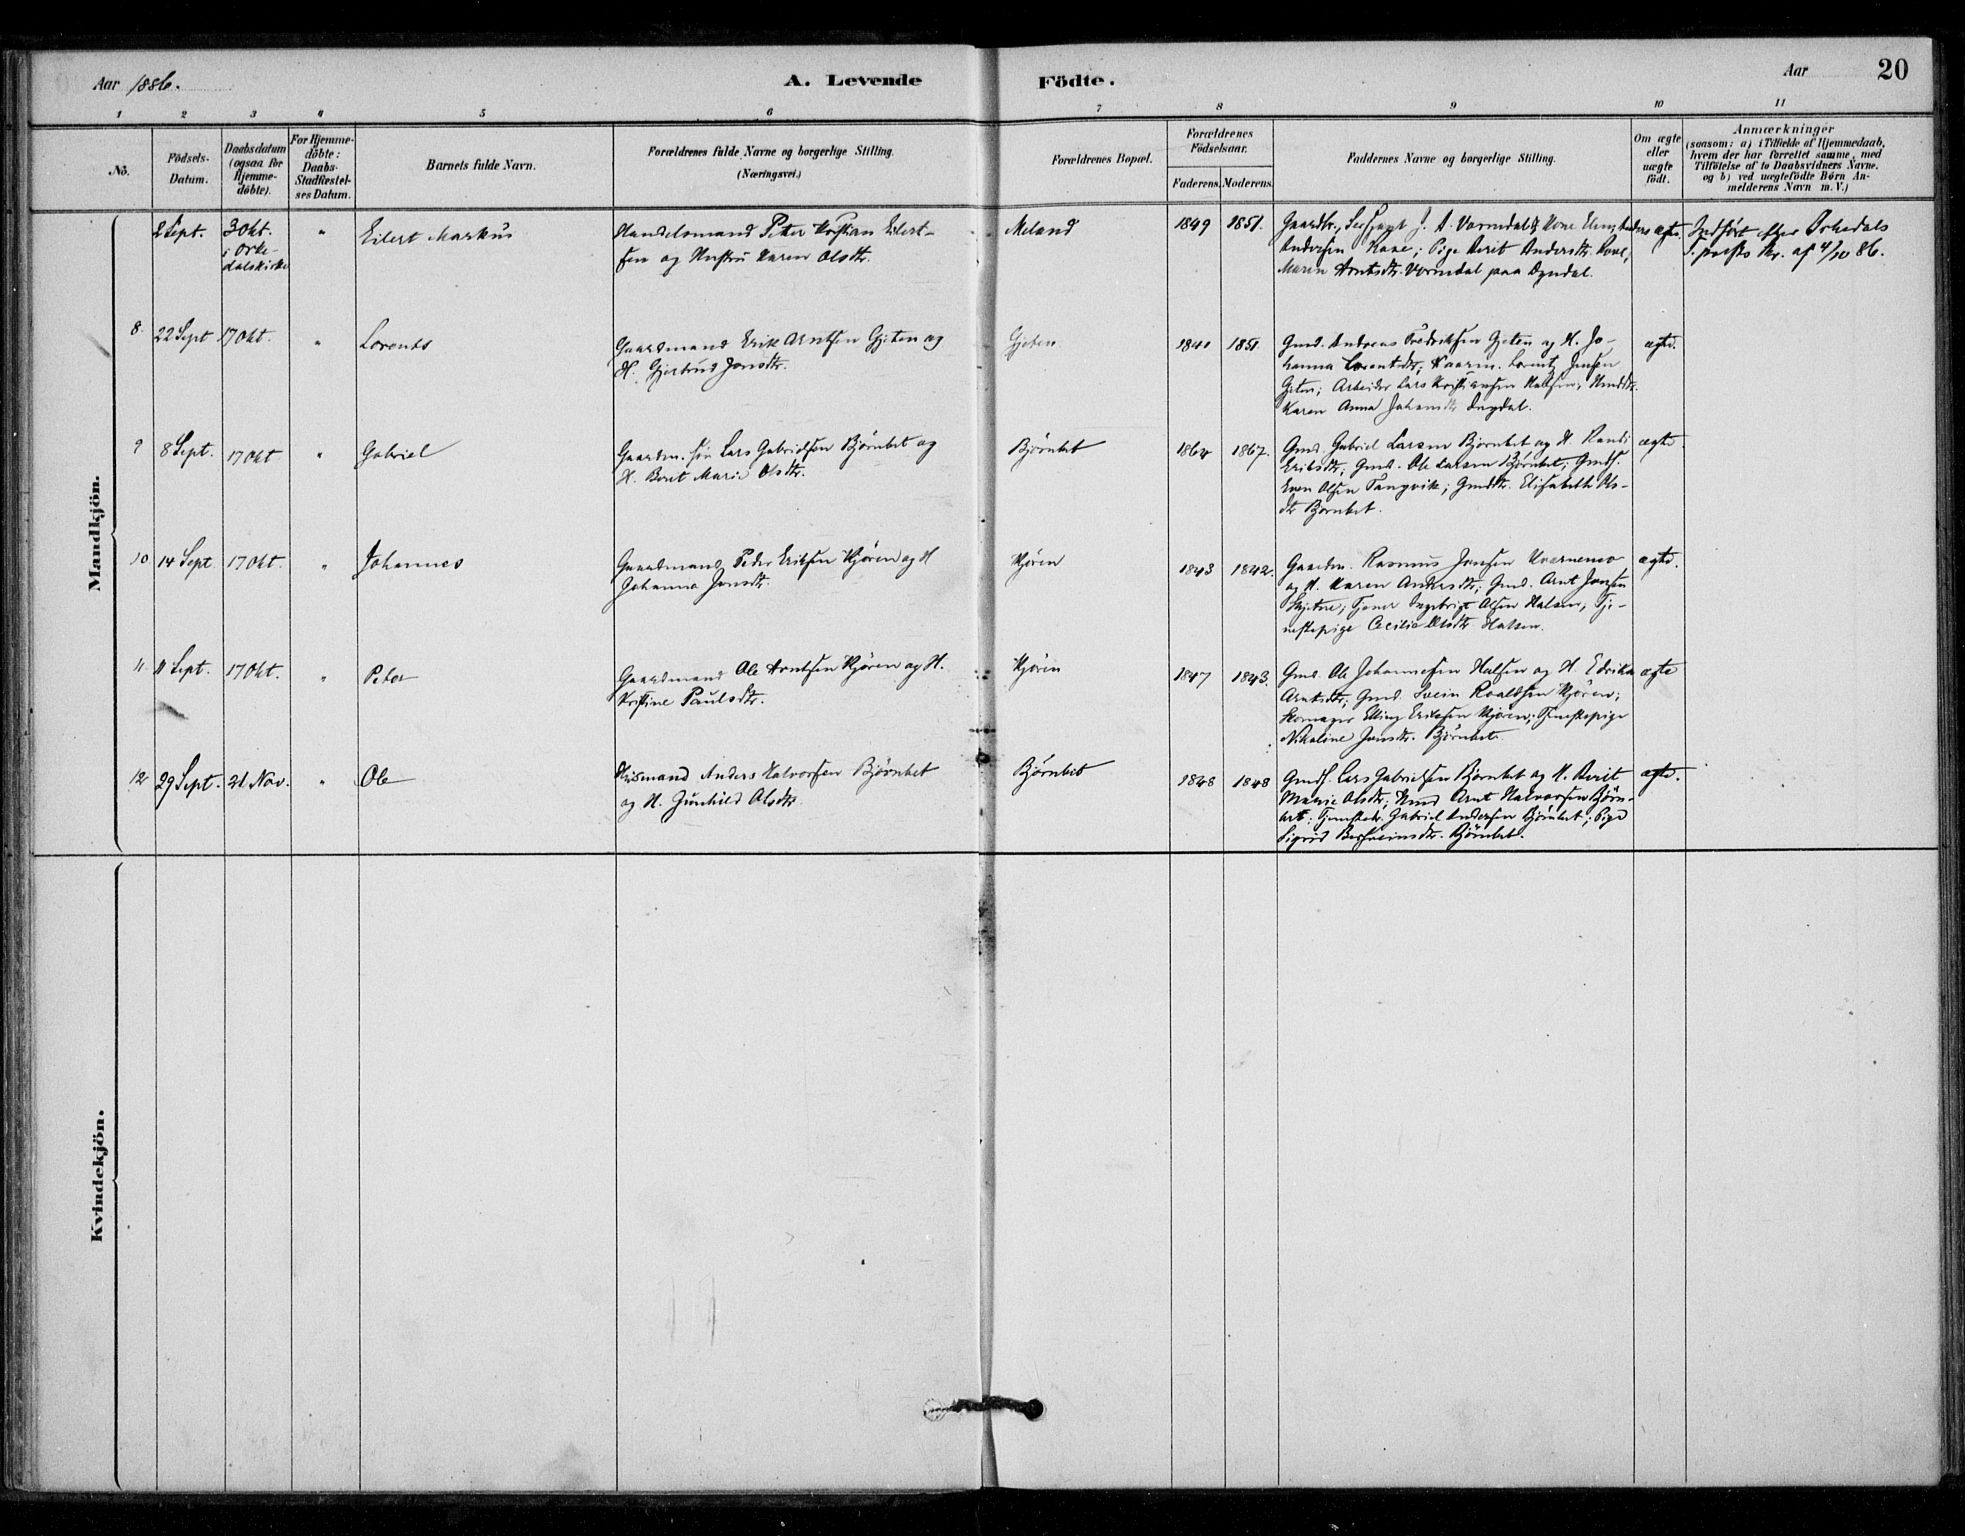 Aar 1886.
A. Levende Födte.
Aar
20
1 2 3 4 5 6 7 8 9 10 11
No.
Födsels-
Datum.
Daabsdatum
(ogsaa for
Hjemme-
döbte).
For Hjemme-
döbte:
Daabs-
Stadfæstel-
ses Datum.
Barnets fulde Navn.
Forældrenes fulde Navne og borgerlige Stilling.
(Næringsvei.)
Forældrenes Bopæl.
Forældrenes
Födselsaar.
Faderens. Moderens.
Faddernes Navne og borgerlige Stilling.
Om ægte
eller
uægte
födt.
Anmærkninger
(saasom: a) i Tilfælde af Hjemmedaab,
hvem der har forrettet samme, med
Tilföielse af to Daabsvidners Navne,
og b) ved uægtefödte Börn An-
melderens Navn m. V.)
Mandkjön.
2 Sept.
3 Okt.
i Orke-
dalskirke
"
Eilert Markus
Handelsmand Peter Kristian Eilert-
sen og Hustru Karen Olsdtr.
Meland
1849 1851.
J. A. Vormdal & Kone
Andersen Pige Berit Andersdtr.
Maren Arntsdtr. Vormdal paa
ægte.
Indført efter Orkedals
S. præsts Skr. af 4/10 86.
8. 22 Sept 17 Okt. "
Lorents
Gaardmand Erik Arntsen Gjeten og
H. Gjertrud Jonsdtr.
Gjeten
1840 1851.
Gmd. Andreas Fredriksen Gjeten og H. Jo-
hanna Lorentsdtr; Jensen
Gjeten; Arbeider Lars Kristiansen
Karen Anna
ægte.
9 8 Sept. 17 Okt "
Gabriel
Gaardm. søn Lars Gabrielsen Bjørnbet og
H. Berit Marie Olsdtr.
Bjørnbet
1864 1867.
Gmd. Gabriel Larsen Bjørnbet og H. Randi
Eriksdtr; Gmd. Ole Larsen Bjørnbet; Gmds.
Even Olsen Tangvik; Gmdtr. Elisabeth Ols-
dtr Bjørnbet.
ægte.
10 14 Sept. 17 Okt. "
Johannes
Gaardmand Peder Eriksen Kjøren og H
Johanna Jonsdtr.
Kjøren
1843 1842.
Gaardm. Rasmus Jonsen Kvernemo
og H. Karen Andersdtr; Gmd. Arnt Jonsen
Tjener Ingebrigt Olsen Halsen, Tje-
nestepige Cecilie Olsdtr Halsen.
ægte.
11. 11 Sept. 17 Okt. "
Peter
Gaardmand Ole Arntsen Kjøren og H.
Kristine Paulsdtr.
Kjøren
1847 1843.
Gmd. Ole Johannesen Halsen og H. Edrika
Arntsdtr; Gmd. Svein Roaldsen Kjøren;
Skomager Elling Eriksen Kjøren; Tjenestepige
Nikoline Jonsdtr. Bjørnbet.
ægte
12 29 Sept. 21 Nov. "
Ole
Husmand Anders Halvorsen Bjørnbet
og H. Gunhild Olsdtr
Bjørnbet
1848 1848
Gmds. Lars Gabrielsen Bjørnbet og H. Berit
Marie Olsdtr; Hmd Arnt Halvorsen Bjørn-
bet; Tjenestek. Gabriel Andersen Bjørnbet; Pige
Sigrid Bjørnbet.
ægte.
Kvindekjön.